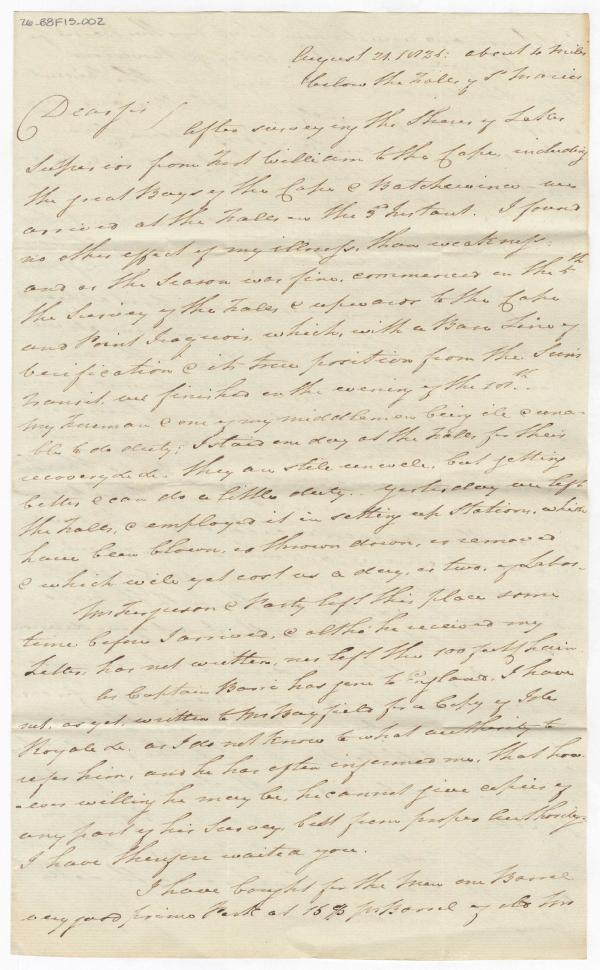 26-B8F15-002
August 21. 1825: about 4 Miles
below the Falls of St Maries
Dear Sir
After surveying the Shores of Lake
Superior from Fort William to the Cape, including
the great Bays of the Cape & Batchewine we
arrived at the Falls on the 3d Instant. I found
no other effect of my illness, than weakness:
and as the Season was fine, commenced on the 5th
the Survey of the Falls & upwards to the Cape
and Point Iroquois which, with a Base Line of
Verification & its true position from the Sun's
transit. we finished on the evening of the
My foreman & one of my middlemen being ill & una-
-ble to do duty; I staid one day at the Falls for their
recovery &c. they are still unwell, but getting
better & can do a little duty.. yesterday we left
the Falls, & employed it in setting up Stations, which
have been blown, or thrown down, or removed
& which will yet cost us a day, or two, of Labor-
Mr Ferguson & Party left this place some
time before I arrived, & altho he received my
Letter, has not written, nor left the 100 feet chain
As Captain Barrie has gone to England, I have
not, as yet, written to Mr Bayfield for a Copy of Isle
Royale &c. as I do not know to what authority to
refer him, and he has often informed me, that how-
-ever willing he may be, he cannot give copies of
any part of his Survey but from proper Authority-
I have therefore waited you.
I have bought for the Men one Barrel
very good prime Pork at pr Barrel of